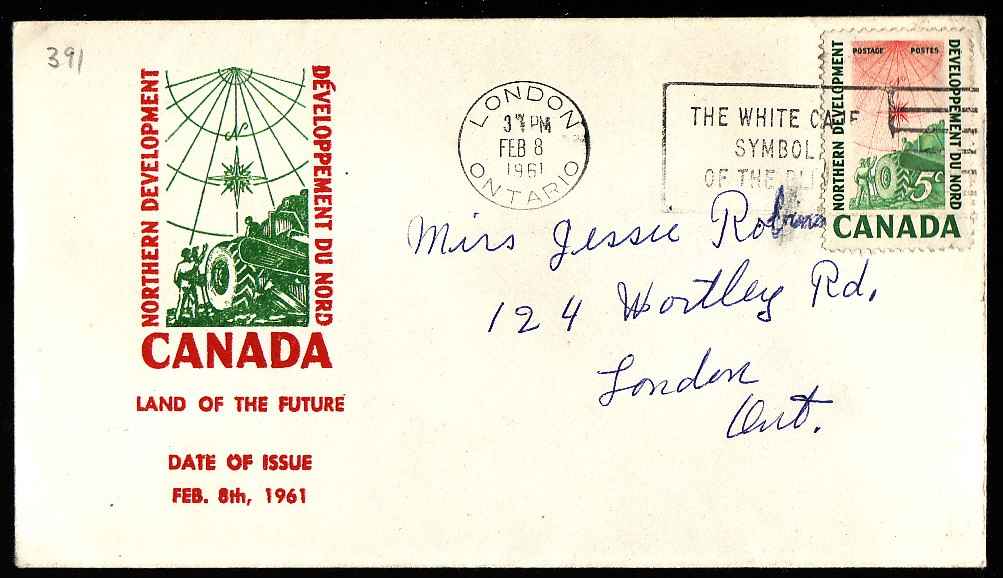 391
NORTHERN DEVELOPMENT
DÉVELOPPEMENT DU NORD
N
CANADA
LAND OF THE FUTURE
DATE OF ISSUE
FEB. 8th, 1961
LONDON
PM
FEB 8
1961
ONTARIO
THE WHITE CANE
SYMBOL
OF THE
POSTAGE POSTES
NORTHERN DEVELOPMENT
DÉVELOPPEMENT DU NORD
5c
CANADA
Miss Jessie
124 Wortley Rd.
London
Ont.